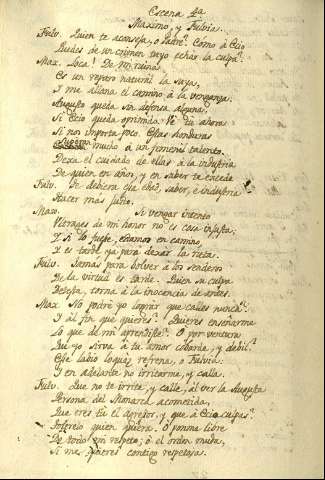 Escena 4a
Maximo, y Fulvia.
Fulv. Quien te aconseja, o Padre? Cómo à Ecio
Puedes de un crimen tuyo echar la culpa?
Max. Loca! De mi ruina
Es un reparo natural la suya,
Y me allana el camino à la venganza.
Augusto queda sin defensa alguna,
Si Ecio queda oprimido. Ve tu ahora
Si nos importa poco. Estas honduras
Superan mucho à un femenil talento.
Dexa el cuidado de ellas à la industria
De quien en años, y en saber te excede
Fulv. Te debiera esa edad, saber, è industria
Hacer mas justo.
Max. Si vengar intento
Ultrages de mi honor no es cosa injusta;
Y si lo fuese, estamos en camino,
Y es tarde ya para dexar la ruta.
Fulv. Jamas para bolver à los senderos
De la virtud es tarde. Quien su culpa
Detesta, torna à la inocencia de antes.
Max. No podré yo lograr que calles nunca?
Y al fin que quieres? Quieres enseñarme
Lo que de mi aprendiste? O por ventura
Que yo sirva à tu amor cobarde, y debil?
Ese labio loquaz refrena, o Fulvia
Y en adelante no irritarme, y calla.
Fulv. Que no te irrite, y calle, al ver la Augusta
Persona del Monarca acometida,
Que eres tu el agresor, y que à Ecio culpas?
Tolerelo quien quiera. O ponme libre
De todo mi respeto; ò el orden muda,
Si me quieres contigo respetosa.